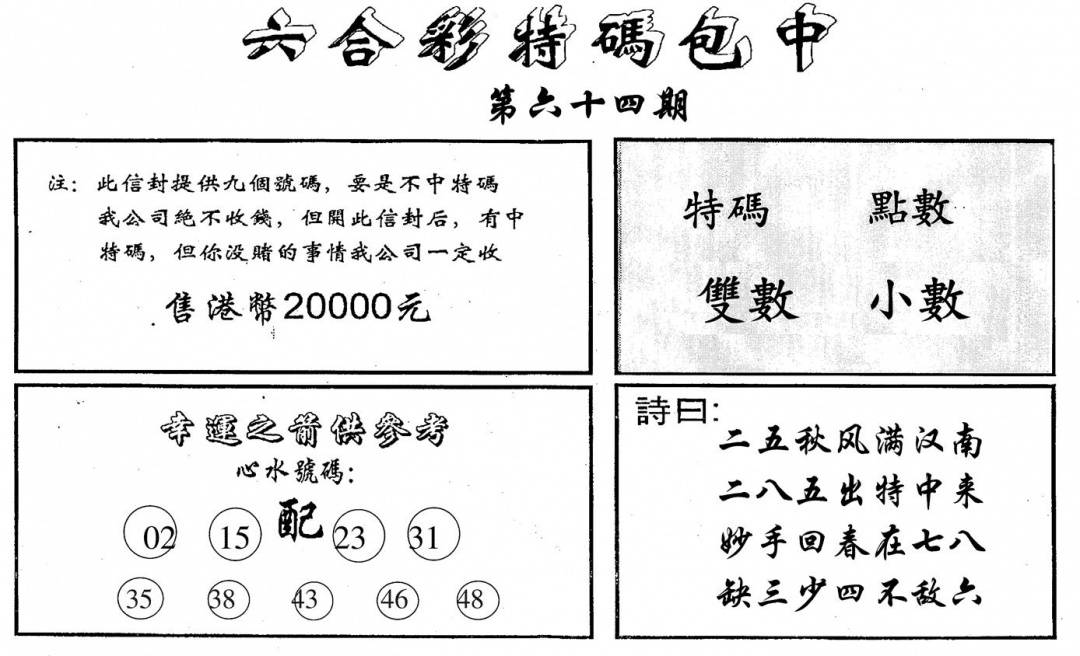 六合彩特碼包中
第六十四期
注：此信封提供九個號碼，要是不中特碼
我公司絕不收錢，但開此信封后，有中
特碼，但你没賭的事情我公司一定收
售港幣20000元
特碼 點數
雙數 小數
幸運之箭供參考
心水號碼：
配
02 15 23 31
35 38 43 46 48
詩曰：
二五秋风满汉南
二八五出特中来
妙手回春在七八
缺三少四不敌六